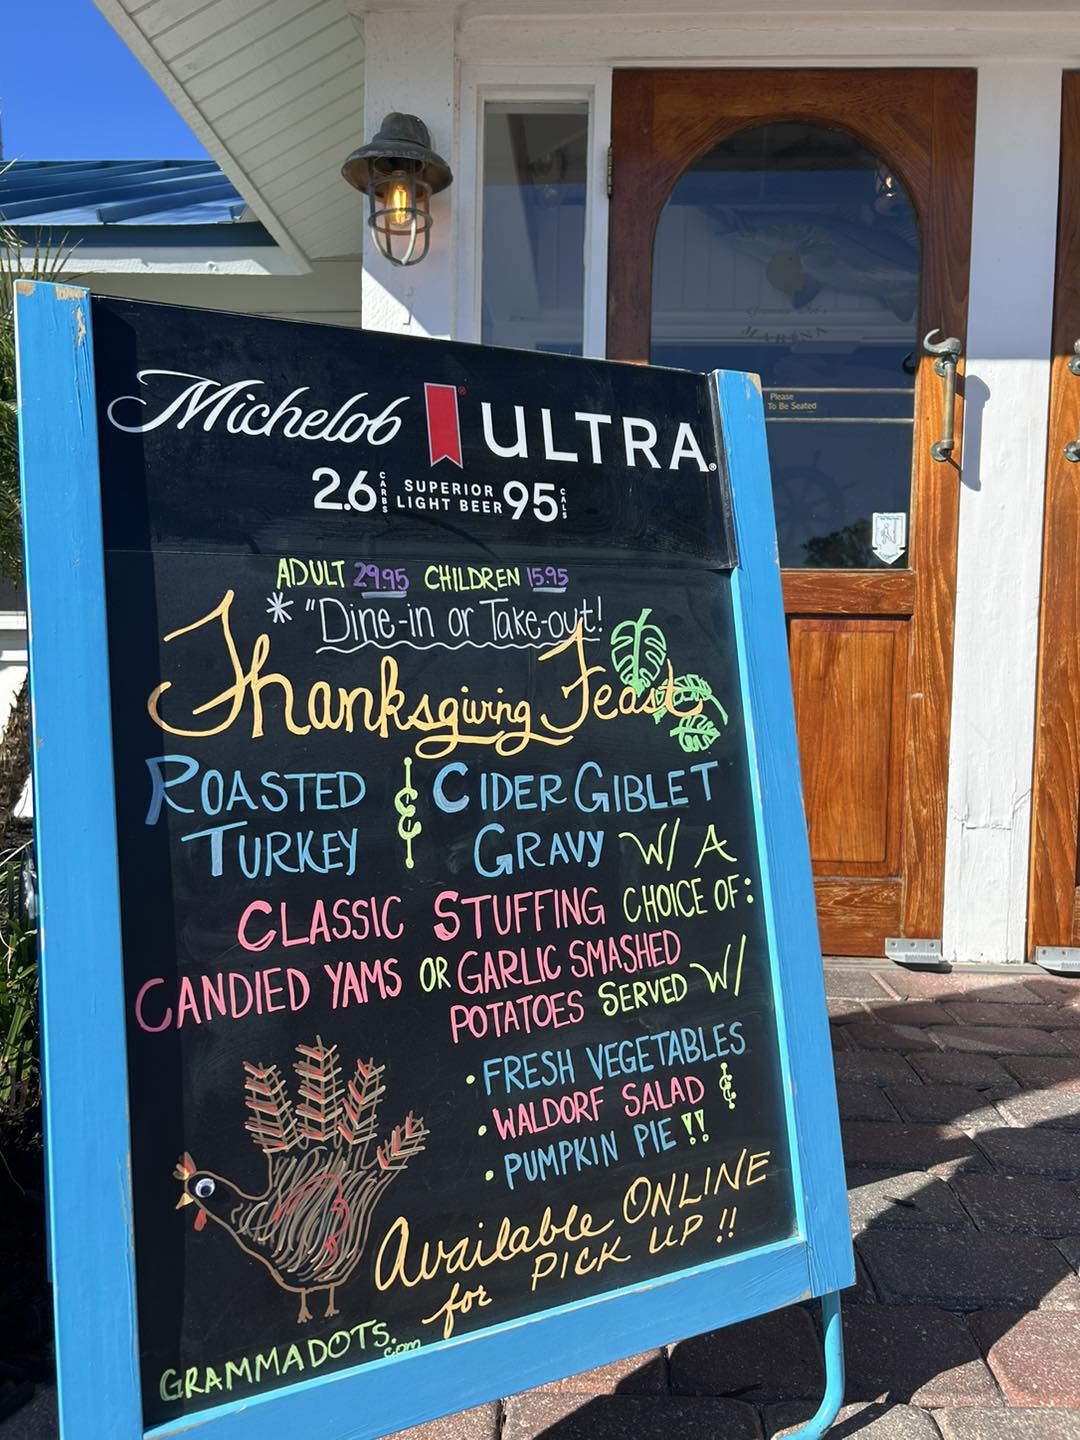 Michelob ULTRA
2.6 CARBS SUPERIOR LIGHT BEER 95 CALS
ADULT 29.95 CHILDREN 15.95
* "Dine-in or Take-out!
Thanksgiving Feast
ROASTED & CIDER GIBLET
TURKEY GRAVY W/ A
CLASSIC STUFFING CHOICE OF:
CANDIED YAMS OR GARLIC SMASHED
POTATOES SERVED W/
• FRESH VEGETABLES
• WALDORF SALAD &
• PUMPKIN PIE !!
Available ONLINE
for PICK UP !!
GRAMMADOTS.com
MARINA
Please
To Be Seated